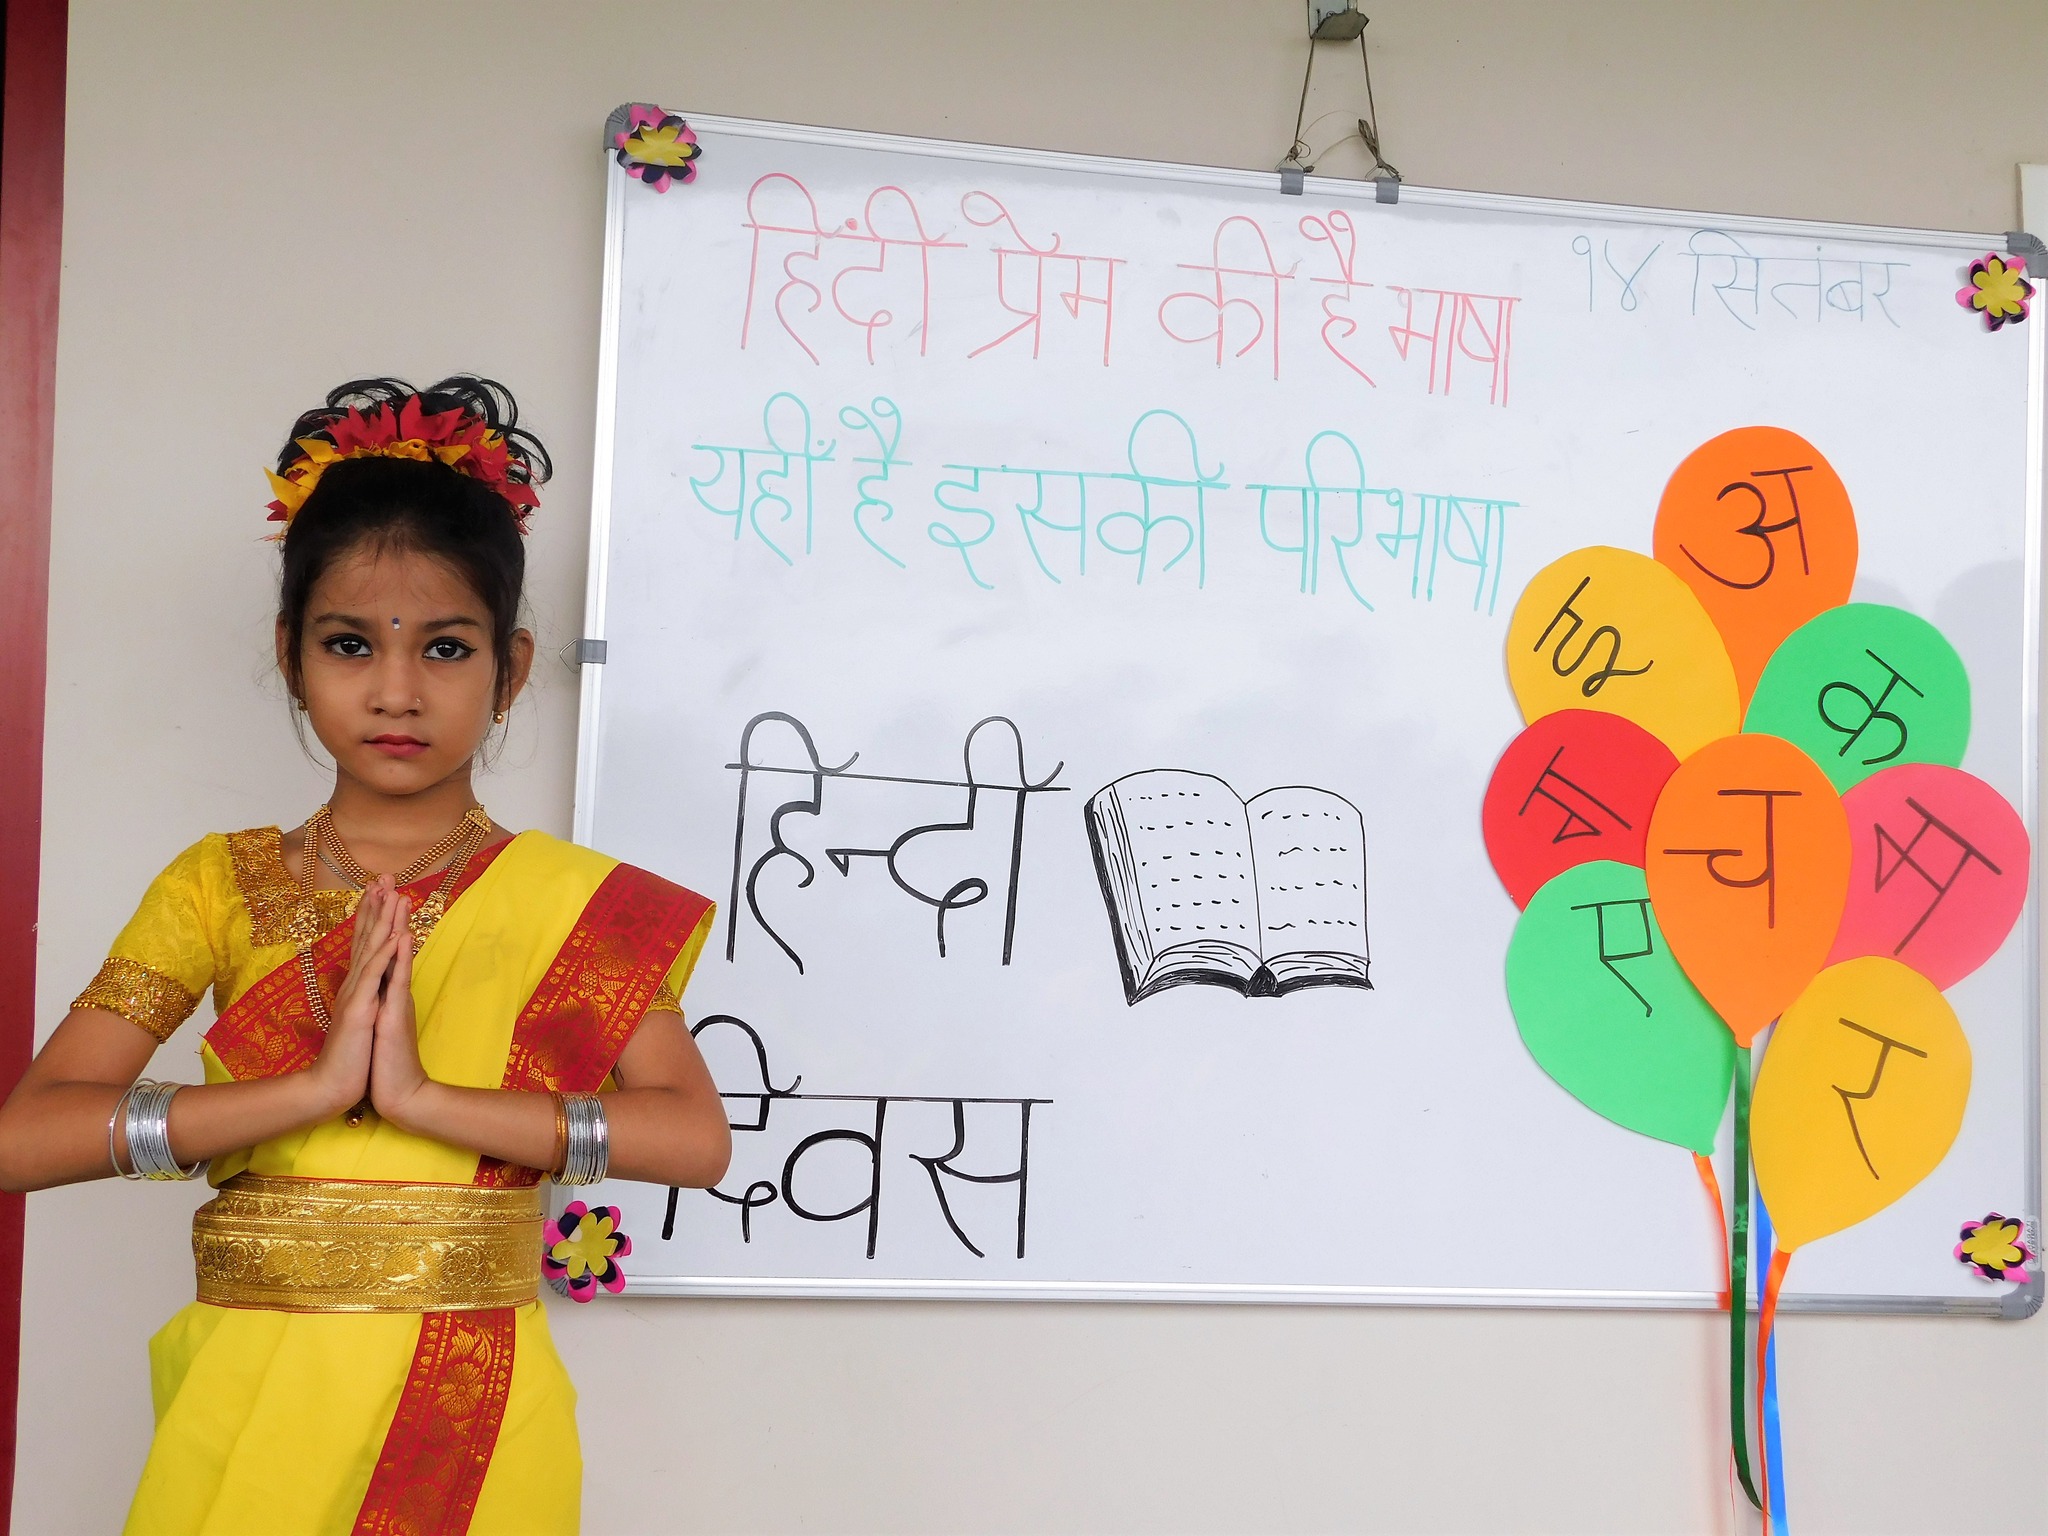 हिंदी प्रेम की है भाषा
१४ सितंबर
यहीं है इसकी परिभाषा
हिन्दी
दिवस
अ
ह
क
ग
च
म
ए
र